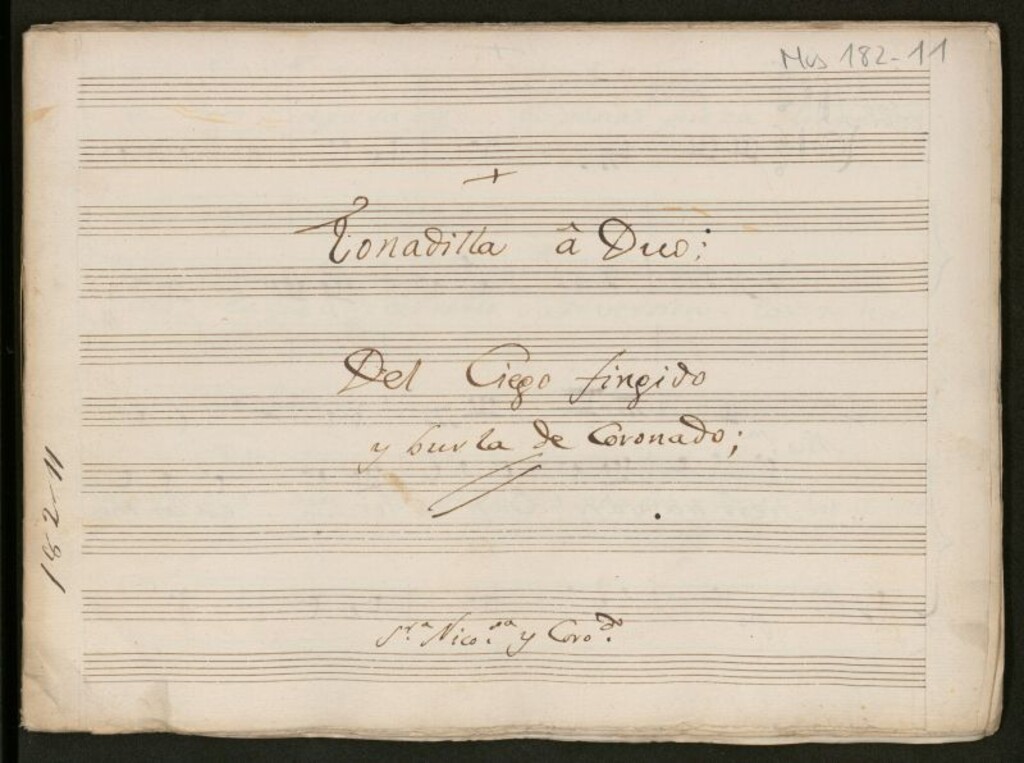 Mus 182-11
+
Tonadilla â Duo;
Del Ciego fingido
y burla de Coronado;
182-11
S.ra Nico.sa y Coro.do